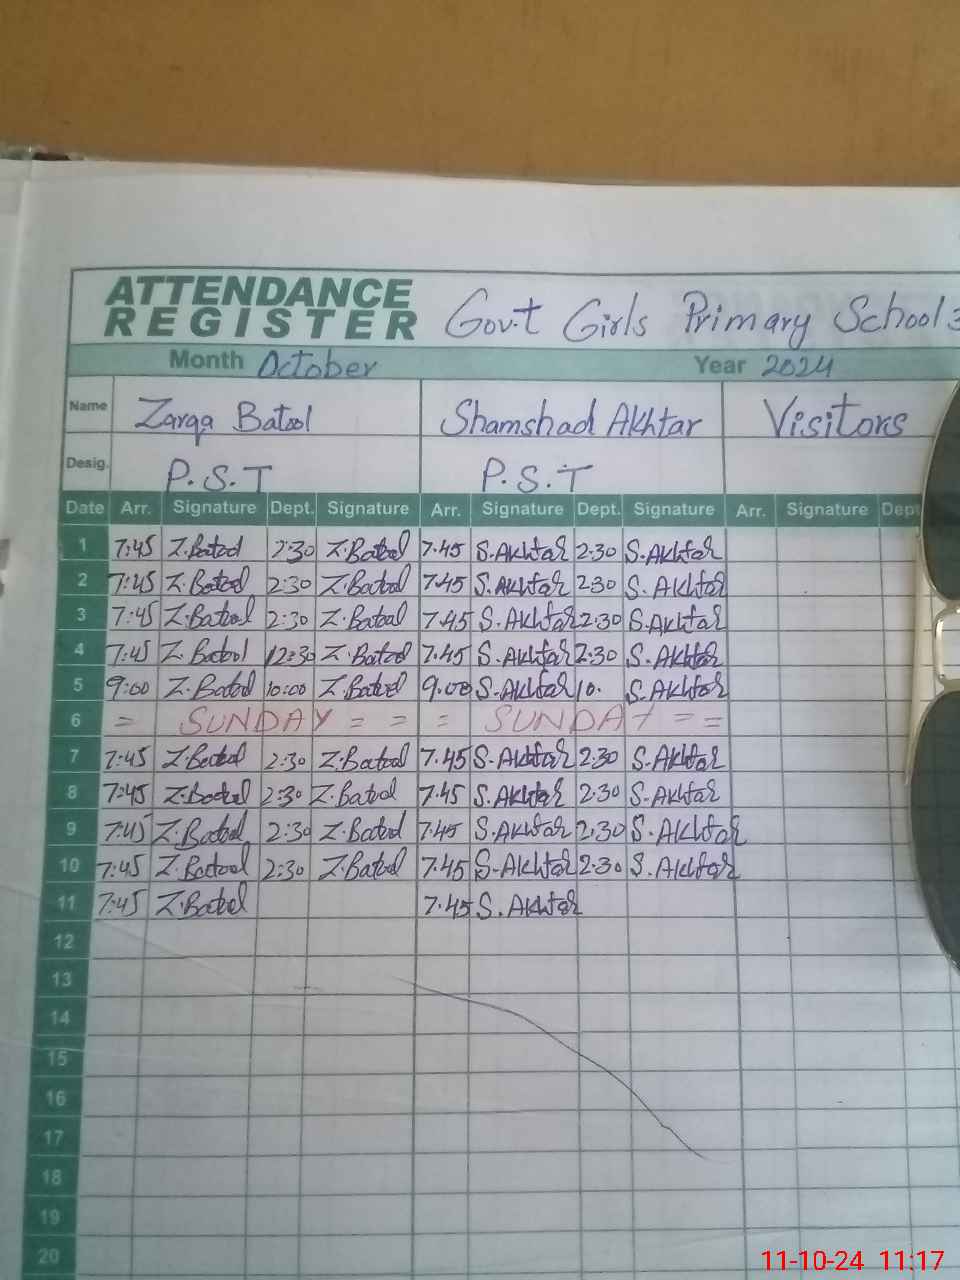 ATTENDANCE
REGISTER
Gov.t Girls Primary School
Month October Year 2024
Name Zarqa Batool Shamshad Akhtar Visitors
Desig. P.S.T P.S.T
Date Arr. Signature Dept. Signature Arr. Signature Dept. Signature Arr. Signature Dept
1 7:45 Z.Batool 2:30 Z.Batool 7.45 S.Akhtar 2.30 S.Akhtar
2 7:45 Z.Batool 2:30 Z.Batool 7.45 S.Akhtar 2.30 S.Akhtar
3 7:45 Z.Batool 2:30 Z.Batool 7.45 S.Akhtar 2.30 S.Akhtar
4 7:45 Z.Batool 12:30 Z.Batool 7.45 S.Akhtar 2.30 S.Akhtar
5 9:00 Z.Batool 10:00 Z.Batool 9.00 S.Akhtar 10. S.Akhtar
6 = SUNDAY = = = SUNDAY = =
7 7:45 Z.Batool 2:30 Z.Batool 7.45 S.Akhtar 2.30 S.Akhtar
8 7:45 Z.Batool 2:30 Z.Batool 7.45 S.Akhtar 2.30 S.Akhtar
9 7:45 Z.Batool 2:30 Z.Batool 7.45 S.Akhtar 2.30 S.Akhtar
10 7:45 Z.Batool 2:30 Z.Batool 7.45 S.Akhtar 2.30 S.Akhtar
11 7:45 Z.Batool 7.45 S.Akhtar
12
13
14
15
16
17
18
19
20
11-10-24 11:17